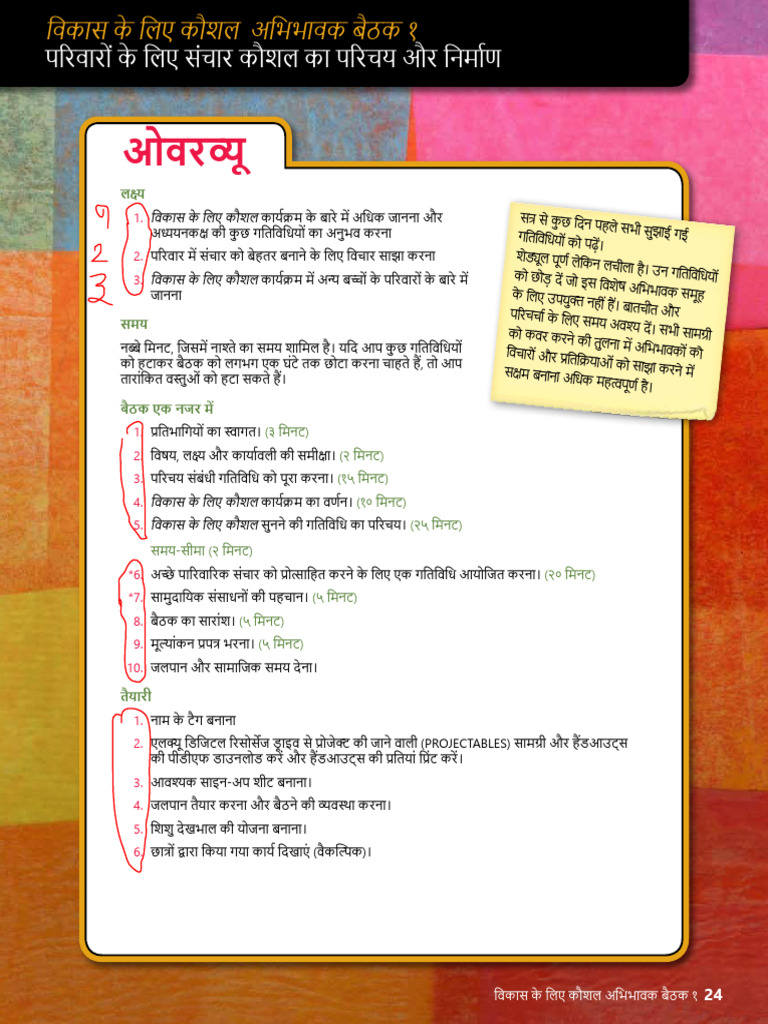 विकास के लिए कौशल अभिभावक बैठक १
परिवारों के लिए संचार कौशल का परिचय और निर्माण
ओवरव्यू
लक्ष्य
१
२
३
1. विकास के लिए कौशल कार्यक्रम के बारे में अधिक जानना और
अध्ययनकक्ष की कुछ गतिविधियों का अनुभव करना
2. परिवार में संचार को बेहतर बनाने के लिए विचार साझा करना
3. विकास के लिए कौशल कार्यक्रम में अन्य बच्चों के परिवारों के बारे में
जानना
सत्र से कुछ दिन पहले सभी सुझाई गई
गतिविधियों को पढ़ें।
शेड्यूल पूर्ण लेकिन लचीला है। उन गतिविधियों
को छोड़ दें जो इस विशेष अभिभावक समूह
के लिए उपयुक्त नहीं हैं। बातचीत और
परिचर्चा के लिए समय अवश्य दें। सभी सामग्री
को कवर करने की तुलना में अभिभावकों को
विचारों और प्रतिक्रियाओं को साझा करने में
सक्षम बनाना अधिक महत्वपूर्ण है।
समय
नब्बे मिनट, जिसमें नाश्ते का समय शामिल है। यदि आप कुछ गतिविधियों
को हटाकर बैठक को लगभग एक घंटे तक छोटा करना चाहते हैं, तो आप
तारांकित वस्तुओं को हटा सकते हैं।
बैठक एक नजर में
1. प्रतिभागियों का स्वागत। (३ मिनट)
2. विषय, लक्ष्य और कार्यावली की समीक्षा। (२ मिनट)
3. परिचय संबंधी गतिविधि को पूरा करना। (१५ मिनट)
4. विकास के लिए कौशल कार्यक्रम का वर्णन। (१० मिनट)
5. विकास के लिए कौशल सुनने की गतिविधि का परिचय। (२५ मिनट)
समय-सीमा (२ मिनट)
*6. अच्छे पारिवारिक संचार को प्रोत्साहित करने के लिए एक गतिविधि आयोजित करना। (२० मिनट)
*7. सामुदायिक संसाधनों की पहचान। (५ मिनट)
8. बैठक का सारांश। (५ मिनट)
9. मूल्यांकन प्रपत्र भरना। (५ मिनट)
10. जलपान और सामाजिक समय देना।
तैयारी
1. नाम के टैग बनाना
2. एलक्यू डिजिटल रिसोर्सेज ड्राइव से प्रोजेक्ट की जाने वाली (PROJECTABLES) सामग्री और हैंडआउट्स
की पीडीएफ डाउनलोड करें और हैंडआउट्स की प्रतियां प्रिंट करें।
3. आवश्यक साइन-अप शीट बनाना।
4. जलपान तैयार करना और बैठने की व्यवस्था करना।
5. शिशु देखभाल की योजना बनाना।
6. छात्रों द्वारा किया गया कार्य दिखाएं (वैकल्पिक)।
विकास के लिए कौशल अभिभावक बैठक १ 24